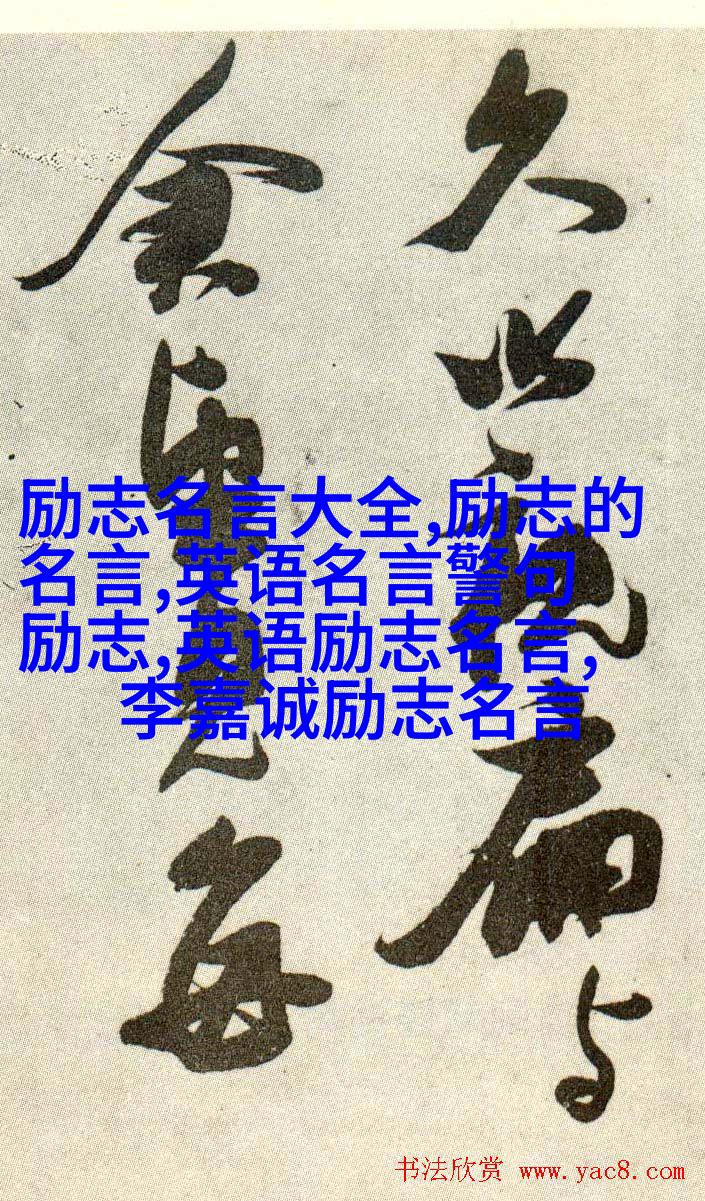 久
扁与
每
励志名言大全,励志的
名言,英语名言警句
励志,英语励志名言,
李嘉诚励志名言
书法欣赏 www.yac8.com